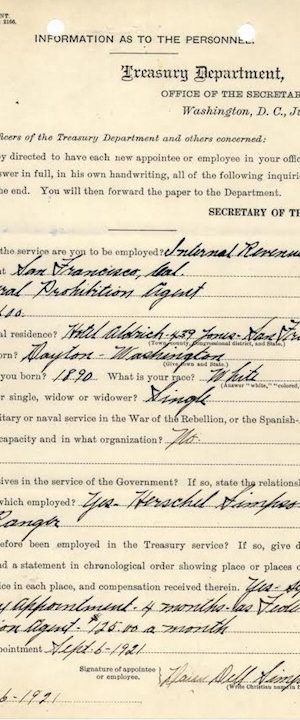 NT.
2166.
INFORMATION AS TO THE PERSONNEL.
Treasury Department,
OFFICE OF THE SECRETAR
Washington, D. C., Ju
ficers of the Treasury Department and others concerned:
by directed to have each new appointee or employee in your office
swer in full, in his own handwriting, all of the following inquiri
he end. You will then forward the paper to the Department.
SECRETARY OF T
the service are you to be employed? Internal Revenue
at San Francisco, Cal.
ral Prohibition Agent
00.
al residence? Hotel Aldrich-439 Jones-San Fr
(Town, county, Congressional district, and State.)
orn? Dayton-Washington
(Give town and State.)
you born? 1890 What is your race? White
(Answer "white," "colored,
or single, widow or widower? Single
itary or naval service in the War of the Rebellion, or the Spanish-
capacity and in what organization? No.
ives in the service of the Government? If so, state the relationsh
which employed? Yes-Herschel Simpso
Ranger
efore been employed in the Treasury service? If so, give d
d a statement in chronological order showing place or places o
ice in each place, and compensation received therein. Yes-
y Appointment-4 months-as
ion Agent-$125.00 a month
ppointment Sept-6-1921
Signature of appointee
or employee, Daisy Dell Simp
(Write Christian name in f
6-1921